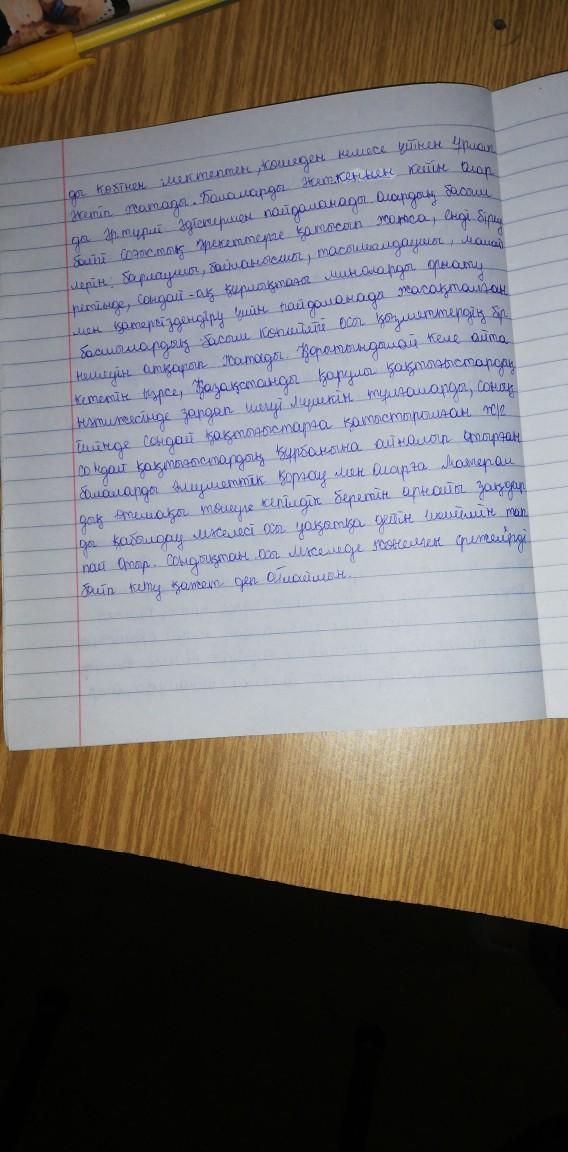 ды көбінен мектептен, көшеден немесе үйінен ұрлап
жетіп жатады. Балаларды жеткеннен кейін олар
ды әр түрлі әдістермен пайдаланады олардың басым
бөлігі соғыстық әрекеттерге қатысып жатса, енді біреу
лерін: барлаушы, байланысшы, тасымалдаушы, малай
ретінде, сондай-ақ құрлықтағы миналарды орнату
мен қатерсіздендіру үшін пайдаланады жасақталған
басшылардың басым көпшілігі осы қызметтердің бір
нешеуін атқарып жатады. Қорытындылай келе айта
кететін нәрсе, Қазақстанды қарулы қақтығыстардың
нәтижесінде зардап шегуі мүмкін тұлғаларды, соның
ішінде сондай қақтығыстарға қатыстырылған және
сондай қақтығыстардың құрбанына айналып отырған
балаларды әлеуметтік қорғау мен оларға материал
дық өтемақы төлеуге кепілдік беретін арнайы заңдар
ды қабылдау мәселесі осы уақытқа дейін шешімін тап
пай отыр. Сондықтан осы мәселеде жөнімен ережелерді
бөліп кету қажет деп ойлаймын.